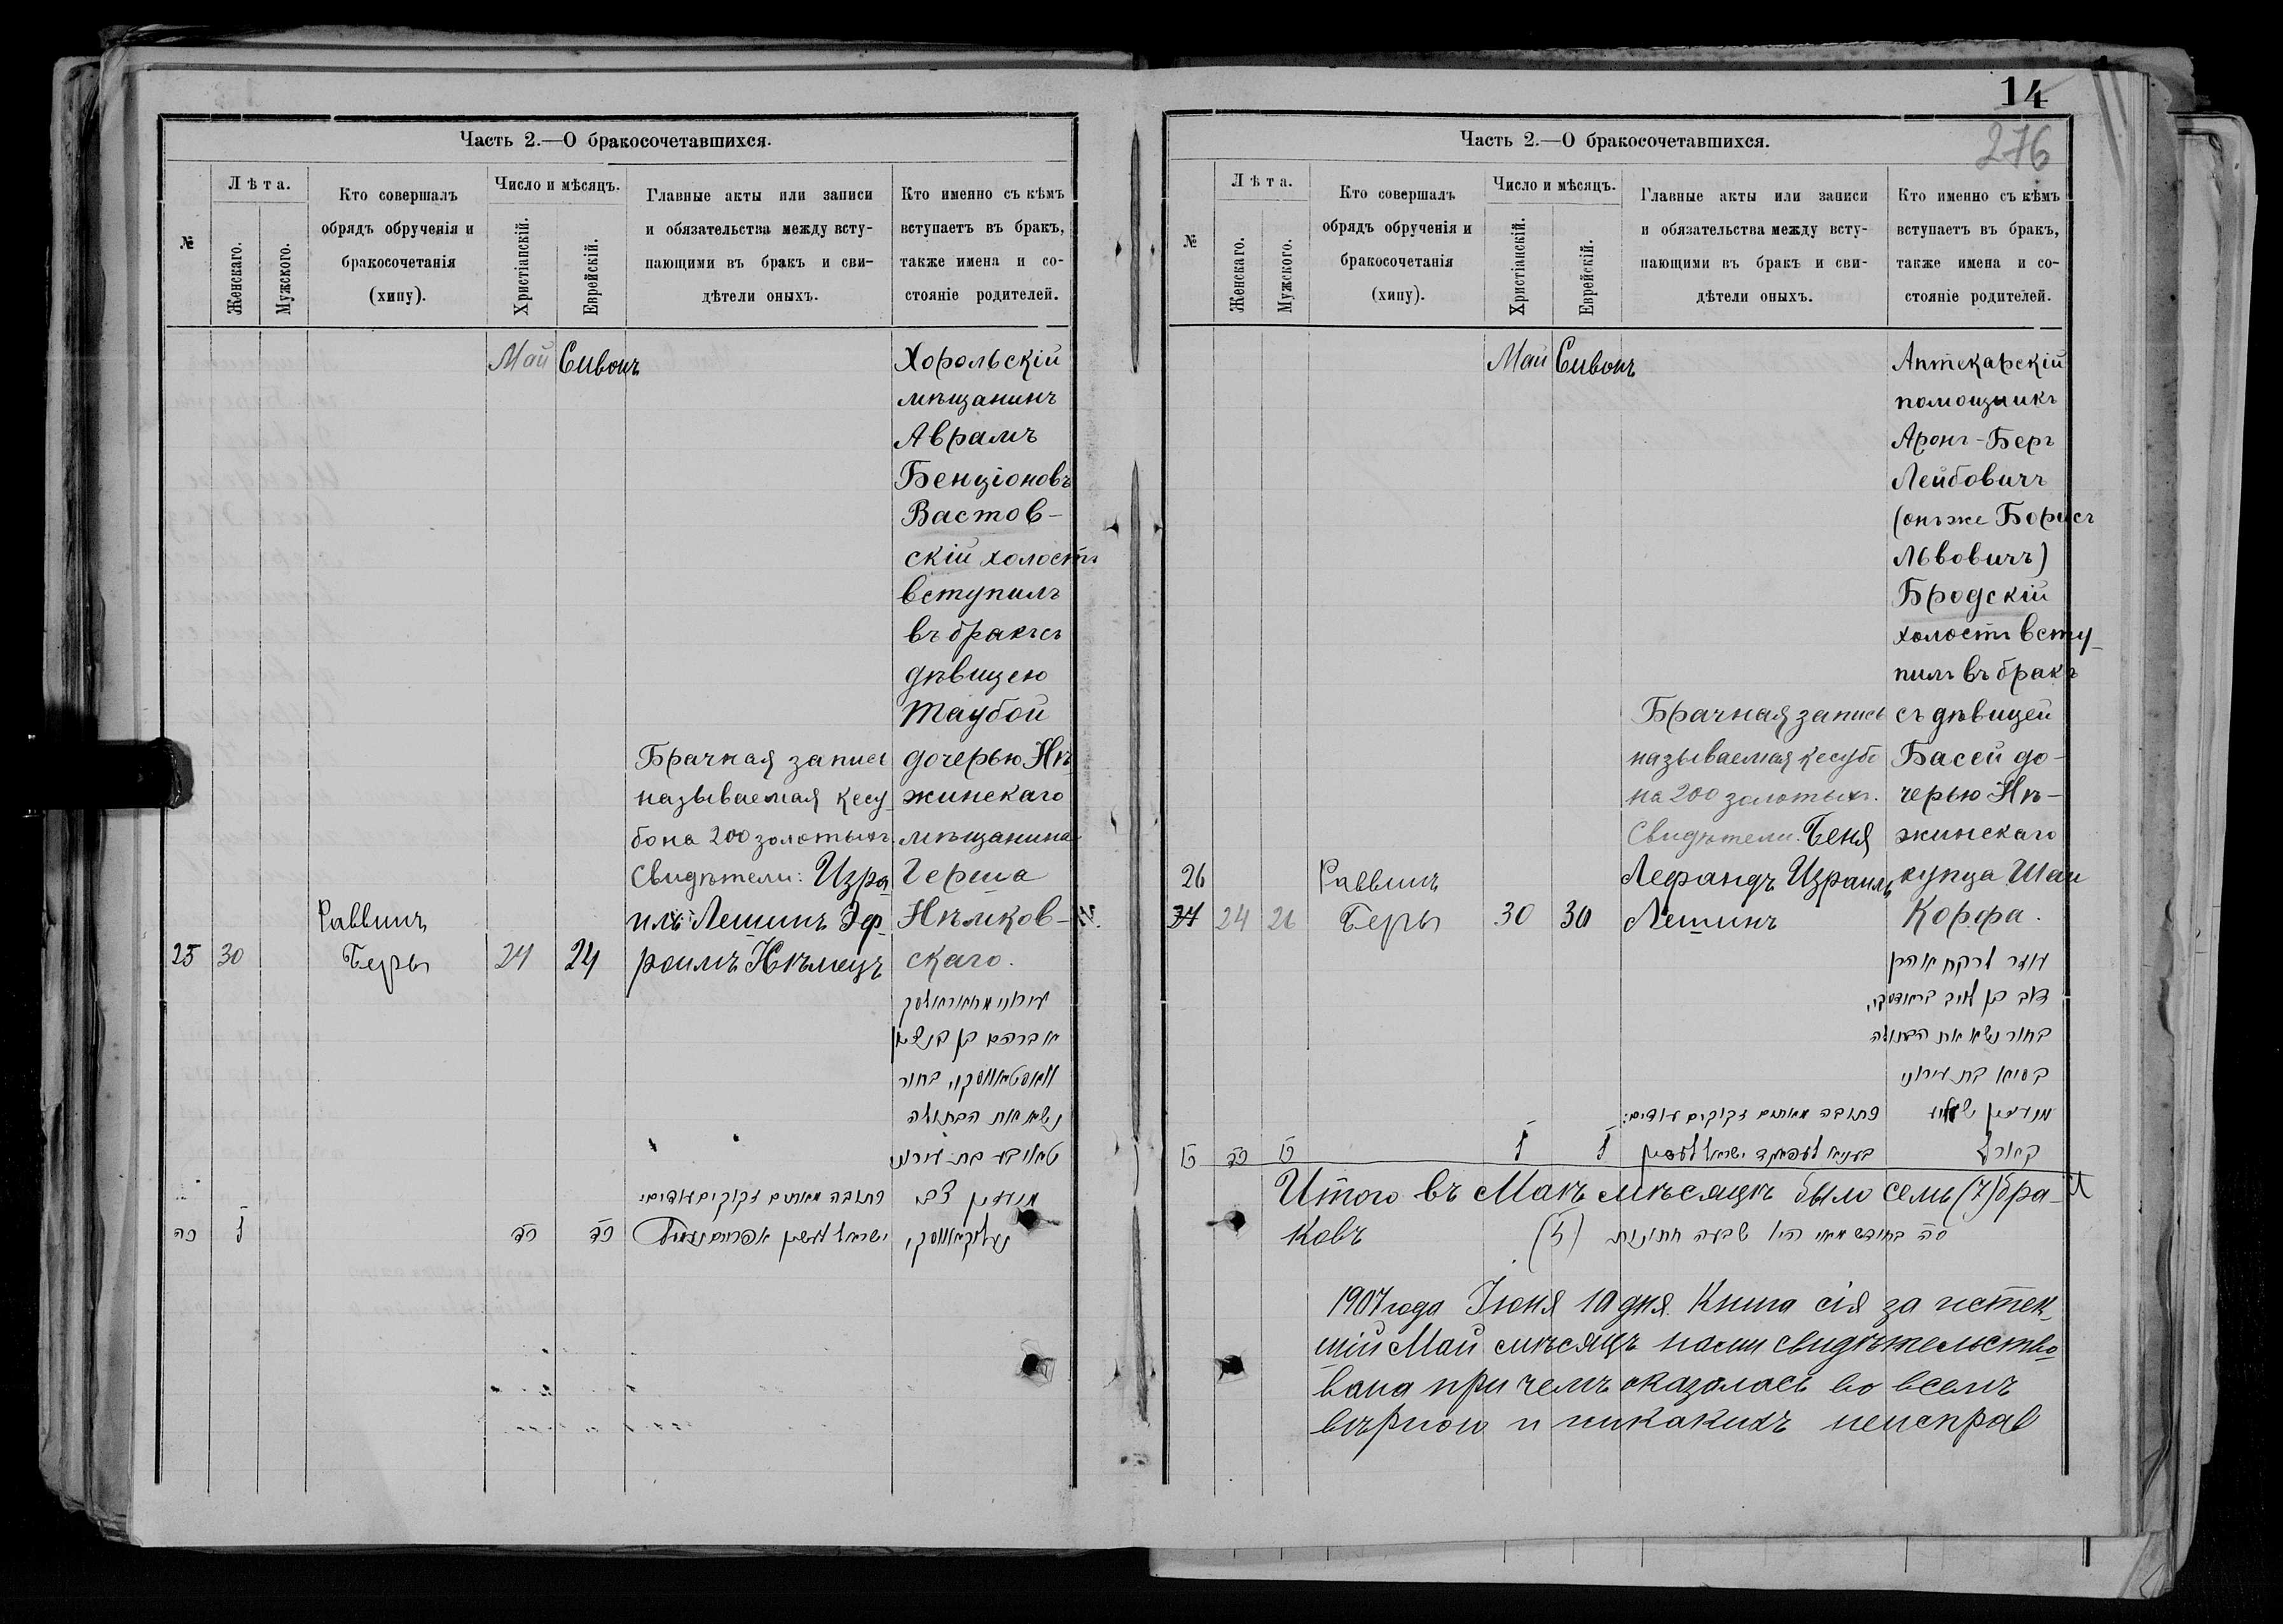 Часть 2.—О бракосочетавшихся.
№
Лѣта.
Женскаго.
Мужского.
Кто совершалъ
обрядъ обрученія и
бракосочетанія
(хипу).
Число и мѣсяцъ.
Христіанскій.
Еврейскій.
Главные акты или записи
и обязательства между всту-
пающими въ бракъ и сви-
дѣтели оныхъ.
Кто именно съ кѣмъ
вступаетъ въ бракъ,
также имена и со-
стояніе родителей.
Май Сивонъ
25 30
Раввинъ
Беръ
24 24
Брачная запись
называемая кесу
бо на 200 золотыхъ.
Свидѣтели: Изра
иль Лешинъ Эф
роимъ Нѣмецъ
Хорольскій
мѣщанинъ
Аврамъ
Бенціоновъ
Вастов-
скій холостъ
вступилъ
въ бракъ съ
дѣвицею
Таубой
дочерью Нѣ
жинскаго
мѣщанина
Герша
Нѣмков-
скаго.
אברהם בן בנציון
בחור
נשא את הבתולה
כתובה מאתים זקוקים
כה ל כד כד
14
276
Часть 2.—О бракосочетавшихся.
№
Лѣта.
Женскаго.
Мужского.
Кто совершалъ
обрядъ обрученія и
бракосочетанія
(хипу).
Число и мѣсяцъ.
Христіанскій.
Еврейскій.
Главные акты или записи
и обязательства между всту-
пающими въ бракъ и сви-
дѣтели оныхъ.
Кто именно съ кѣмъ
вступаетъ въ бракъ,
также имена и со-
стояніе родителей.
Май Сивонъ
26
24 26
Раввинъ
Беръ
30 30
Брачная запись
называемая кесубо
на 200 золотыхъ.
Свидѣтели: Беня
Лефандъ Израиль
Лешинъ
Аптекарскій
помощникъ
Аронъ-Беръ
Лейбовичъ
(онъ же Борисъ
Львовичъ)
Бродскій
холостъ всту
пилъ въ бракъ
съ дѣвицей
Басей до-
черью Нѣ-
жинскаго
купца Шаи
Корфа.
עוזר רוקח אהרן
דוב בן לייב בראדסקי,
בחור נשא את הבתולה
כתובה מאתים זקוקים
כו כד כו ל ל
Итого въ Маѣ мѣсяцѣ было семь (7) бра-
ковъ
סה בחודש מאי היו שבעה חתונות (7)
1907 года Іюня 10 дня. Книга сія за истек
шій Май мѣсяцъ нами свидѣтельство
вана при чемъ оказалась во всемъ
вѣрною и никакихъ неисправ